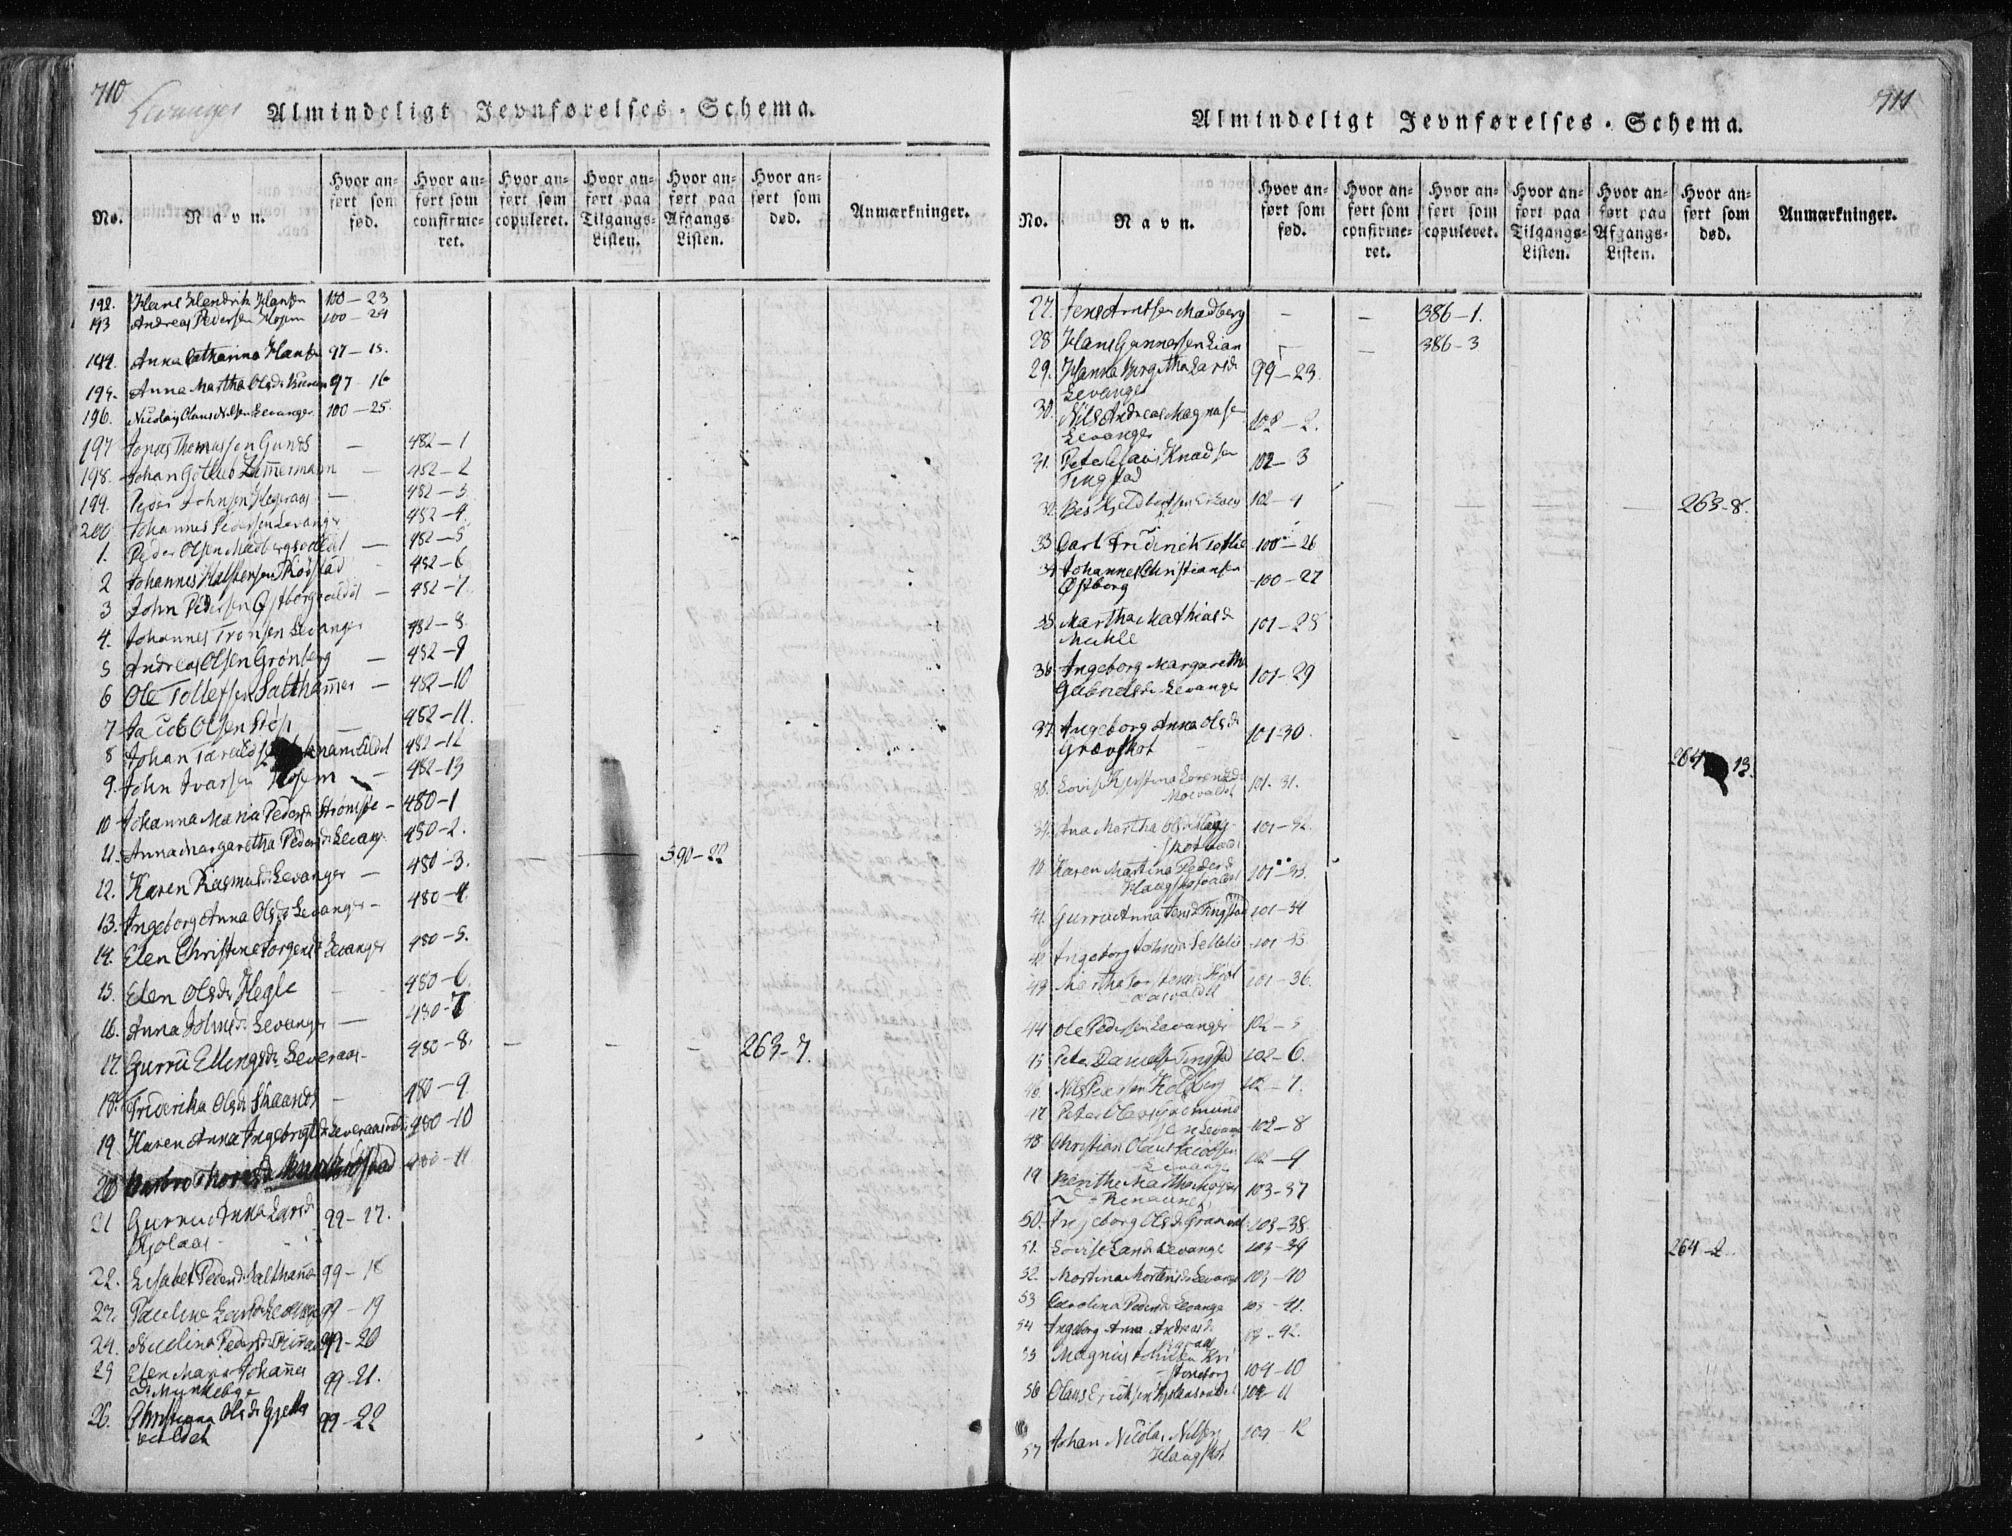 710
Levanger
Almindeligt Jevnførelses-Schema.
No.
Navn.
Hvor anført som fød.
Hvor anført som confirmeret.
Hvor anført som copuleret.
Hvor anført paa Tilgangs-Listen.
Hvor anført paa Afgangs-Listen.
Hvor anført som død.
Anmærkninger.
192. Hans Hendrik Hansen 100-23
193 Andreas Pedersen Hojem 100-24
194. Anna Catharina Hans 97-15.
195. Anna Martha Olsdr 97-16
196. Nicolay Claus Nilsen Levanger 100-25
197 Jonas Thomassen Gunds — 482-1
198. Johan Gotlieb Zimmermann — 482-2
199. Peder Johnsen Hegeraas — 482-3
200 Johannes Pedersen Levanger 482-4
1. Peder Olsen Madbergsvaldet — 482-5
2 Johannes Halstensen 482-6
3 John Pedersen Østborgvaldet — 482-7
4. Johannes Tronsen Levanger 482-8
5 Andreas Olsen Grønberg — 482-9
6 Ole Tollefsen Salthammer — 482-10
7 Jacob Olsen Stöp — 482-11.
8 Johan 482-12
9. John Ivarsen Hojem — 482-13
10 Johanna Maria Pedersdr — 480-1
11. Anna Margaretha Pedersdr Levang. 480-2. — — 390-22
12. Karen Rasmusdr Levanger — 480-3.
13. Ingeborg Anna Olsdr Levanger — 480-4.
14. Elen Christine Jørgensdr Levanger 480-5.
15. Elen Olsdr Hegle — 480-6
16. Anna Johnsdr Levanger — 480-7
17 Gurru Ellingsdr Leveraas — 480-8. — — — 263-7.
18. Friderika Olsdr — 480-9
19 Karen Anna Ingebrigtsdr 480-10
20 480-11
21 Gurru Anna Larsdr 99-17.
22. Lisabet Pedersdr Salthammer 99-18
23. Pauline Larsdr 99-19
24. Nicolina Pedersdr 99-20
25 Elen Maria Johannes
dr Munkebye 99-21.
26. Christiana Olsdr Gjette
valdet 99-22
711
Almindeligt Jevnførelses-Schema.
No.
Navn.
Hvor anført som fød.
Hvor anført som confirmeret.
Hvor anført som copuleret.
Hvor anført paa Tilgangs-Listen.
Hvor anført paa Afgangs-Listen.
Hvor anført som død.
Anmærkninger.
27. Jens Arntsen Madberg — — 386-1.
28 Hans Gunnersen Lian — — 386-3
29. Hanna Birgitha Larsdr
Levanger 99-23.
30. Nils Andreas Magnus
Levanger 102-2.
31. Peter Knudsen
Tingstad 102-3
32 102-4 — — — — 263-8.
33 Carl Friderich 100-26
34 Johannes Christiansen
Østborg 100-27
35 Martha Mathiasdr
Muhle 101-28
36 Ingeborg Margaretha
Gabrielsdr Levanger 101-29
37. Ingeborg Anna Olsdr
101-30. 264 13.
38. Lovise Kjerstina 101-31.
39. Ana Martha Olsdr 101-32
40 Karen Martina Pedersdr
101-33.
41. Gurru Anna Jensdr Tingstad 101-34
42 Ingeborg Johnsdr 101-35
43 Martha 101-36.
44 Ole Pedersen Levanger 102-5
45 Peter Tingstad 102-6.
46 Nils Pedersen Kolberg 102-7.
47 Peter
102-8
48 Christian Olaus Jacobsen
Levanger 102-9
49 Berithe Martha
103-37
50. Ingeborg Olsdr 103-38
51. Lovise Levange 103-39 264-2.
52. Martina Mortensdr Levanger 103-40
53 Carolina Pedersdr Levange 103-41.
54 Ingeborg Anna Andreasdr
-42.
55 Magnus Johnsen
104-10
56 Olaus Ericksen 104-11
57 Johan Nicolai Nilsen
Haugskot 104-12